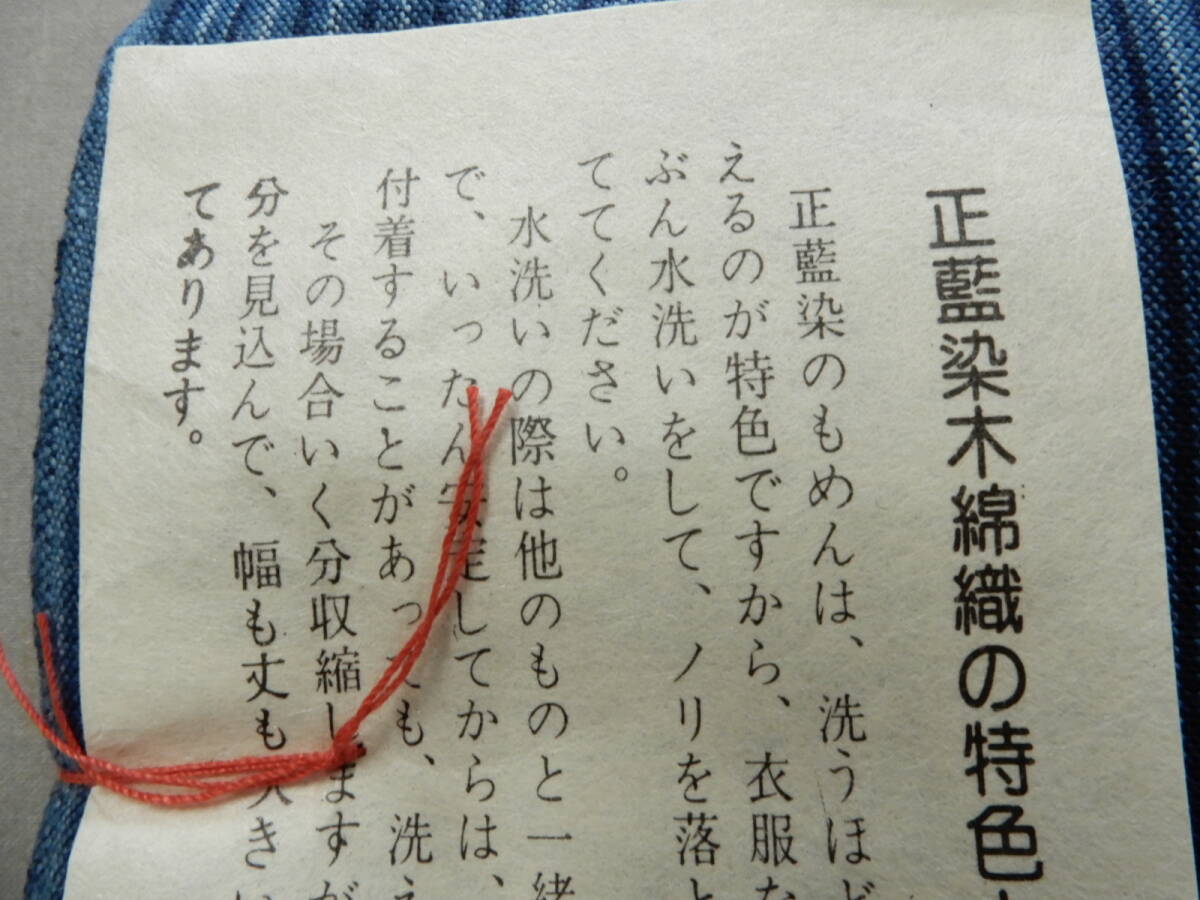 正藍染木綿織の特色
正藍染のもめんは、洗うほど
えるのが特色ですから、衣服な
ぶん水洗いをして、ノリを落と
ててください。
水洗いの際は他のものと一緒
で、いったん安定してからは、
付着することがあっても、洗え
その場合いく分収縮しますが
分を見込んで、幅も丈も大きい
てあります。